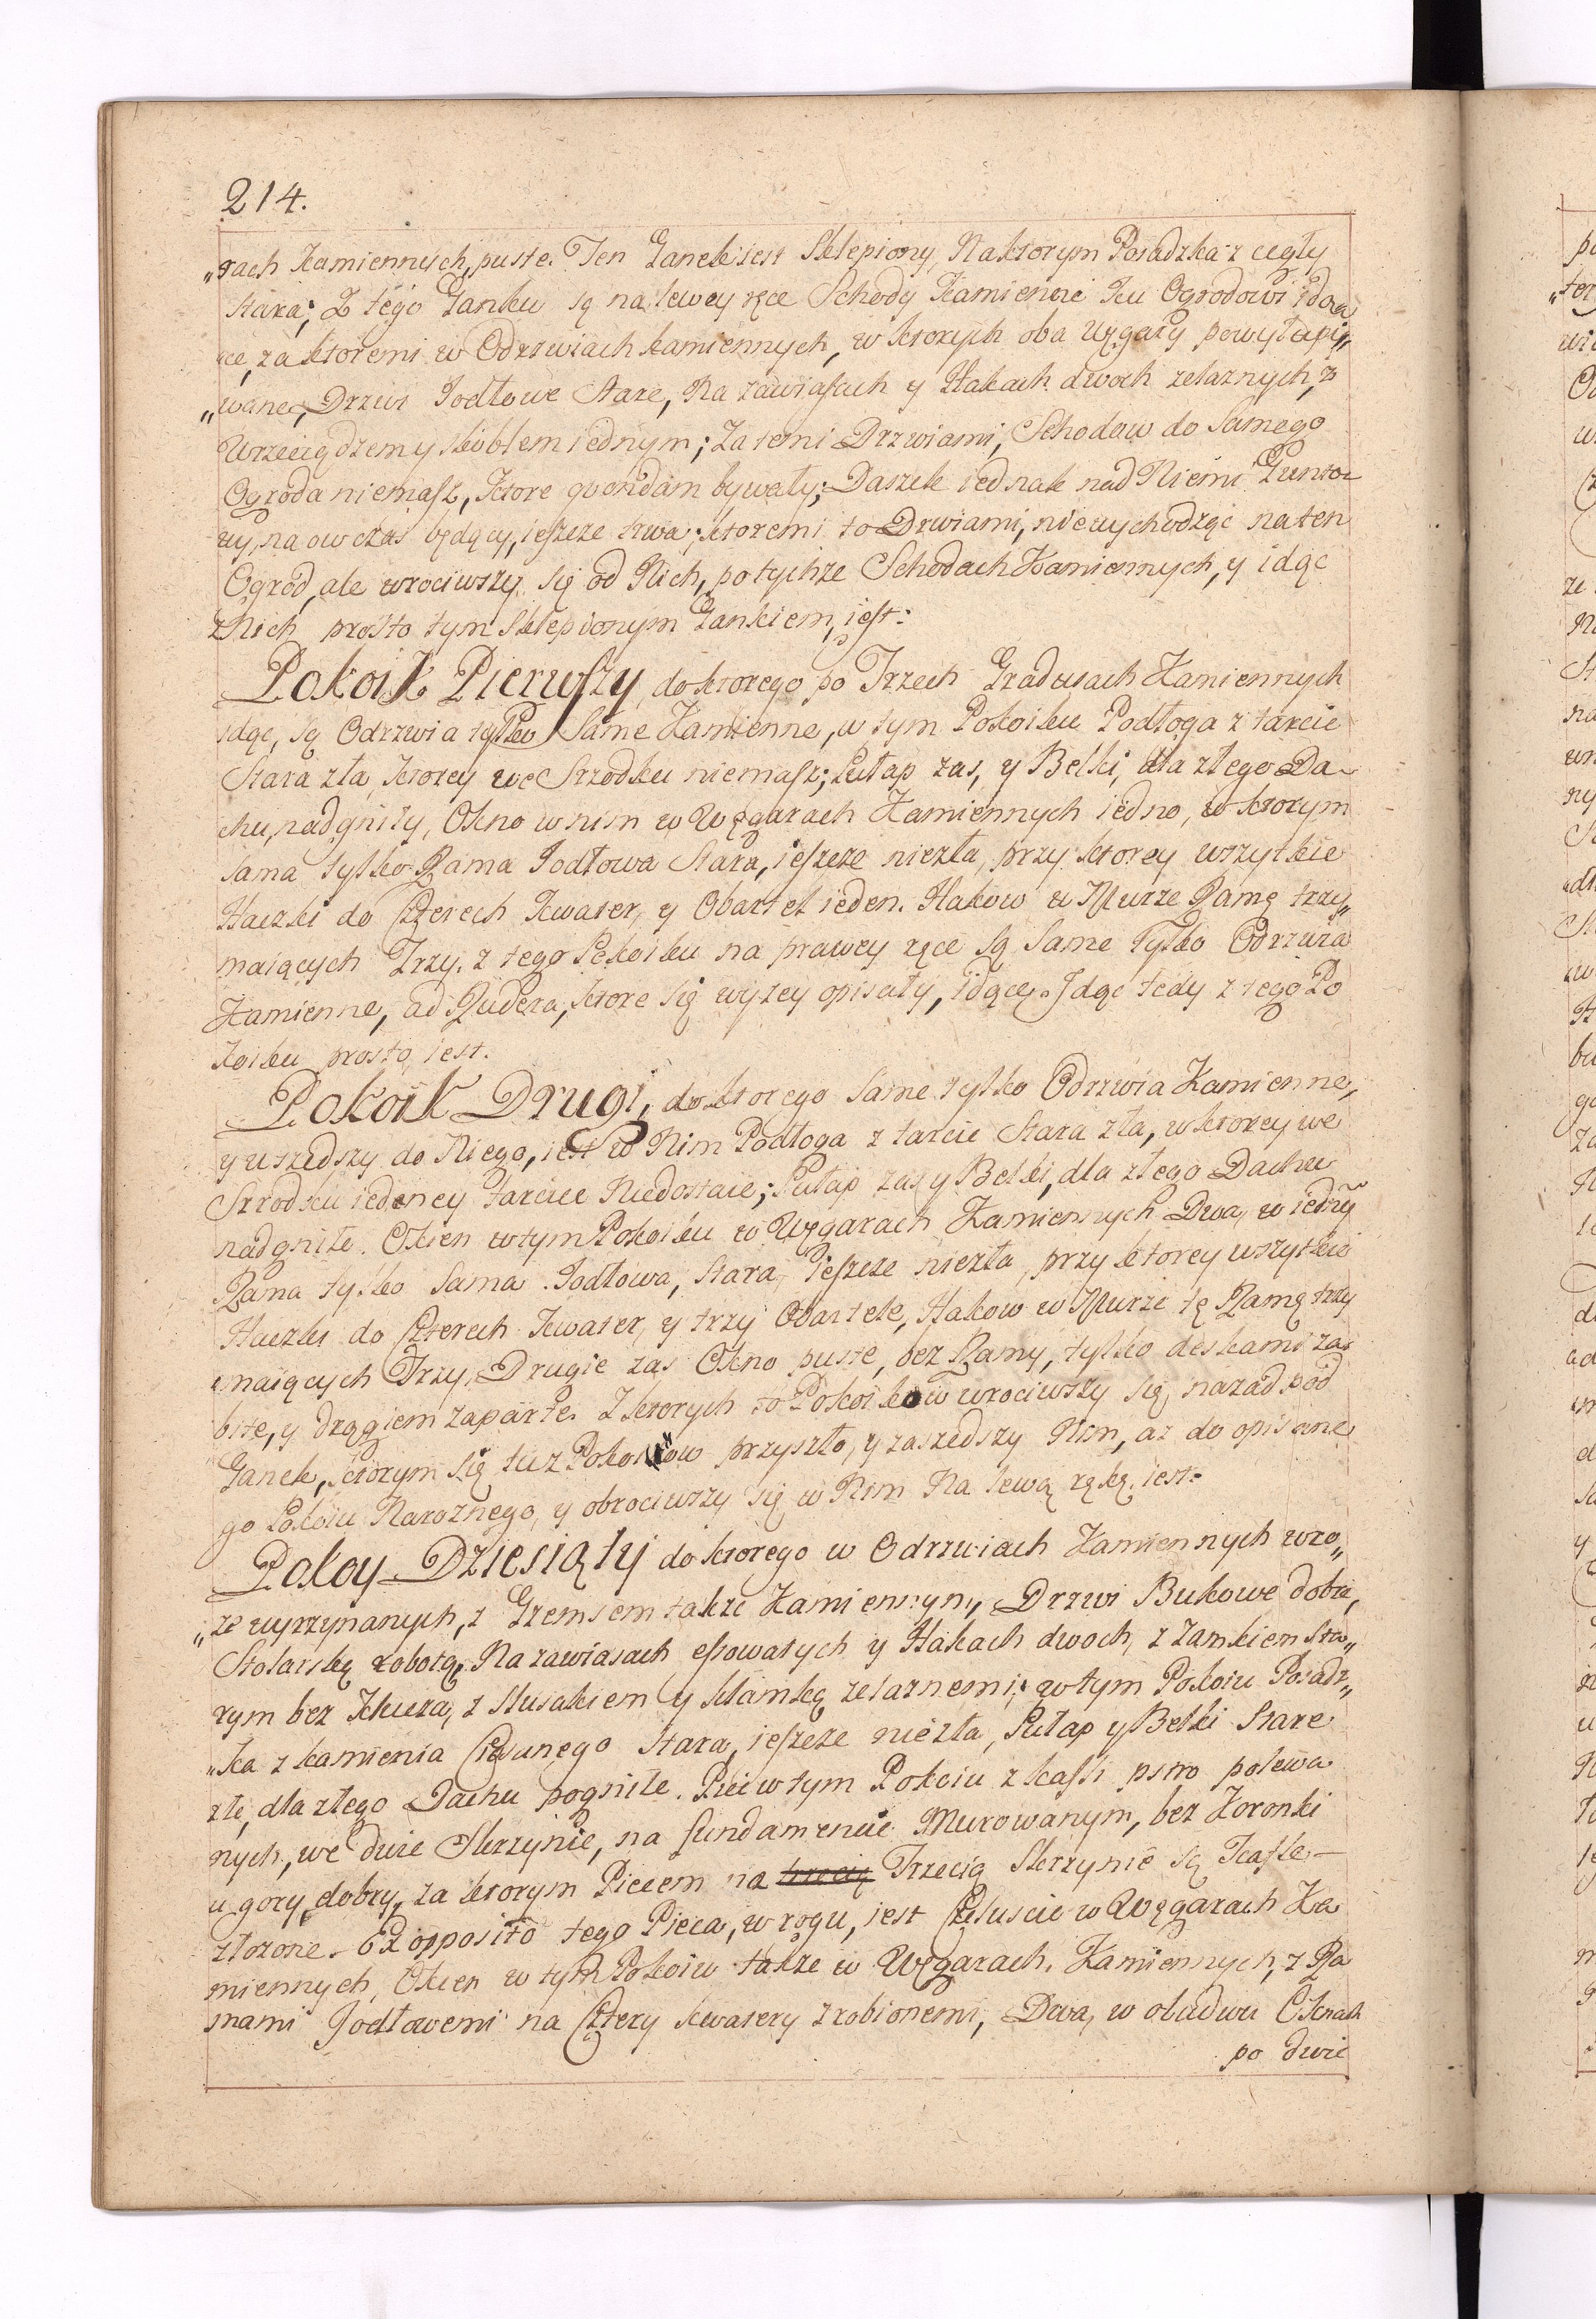 214.
„rach Kamiennych, puste. Ten Ganek iest Sklepiony, Naktorym Posadzka z cegły
stara; Z tego Ganku są na lewey ręce Schody Kamienne Ku Ogrodowi idoą
ce, za ktoremi w Odrzwiach kamiennych, w ktorych oba Węgary powyłupy„
„wane, Drzwi Jodłowe stare, na zawiasach y Hakach dwoch zelaznych, z
Wrzeciądzem y skoblem iednym; Za temi Drzwiami, Schodow do Samego
Ogroda niemasz, Ktore quondam bywały; Daszek iednak nad Niemi Gunto-
wy, na owczas będący, ieszcze trwa; ktoremi to Drwiami, niewychodząc na ten
Ogród, ale wrociwszy się od Nich, po tychze Schodach Kamiennych, y idąc
z Nich prosto tym Sklepionym Gankiem, iest:
Pokoik Pierwszy, do ktorego po Trzech Gradusach Kamiennych
idąc, są Odrzwia tylko Same Kamienne, w tym Pokoiku Podłoga z tarcic
Stara zła, ktorey we Srzodku niemasz; Pułap zas, y Belki, dla złego Da-
chu, nadgniły, Okno w nim w Węgarach Kamiennych iedno, w ktorym
sama tylko Rama Jodłowa Stara, ieszcze niezła, przy ktorey wszytkie
Haczki do Czterech Kwater, y Obartel ieden. Hakow w Murze Ramę trzy„
maiących Trzy. z tego Pokoiku na prawey ręce są same Tylko Odrzwia
Kamienne, ad Rudera, ktore się wyzey opisały, idący. Idąc tedy z tego Po
Koiku prosto, iest.
Pokoik Drugi, do ktorego same tylko Odrzwia Kamienne,
y wszedszy do Niego, iest w Nim Podłoga z tarcic Stara zła, w ktorey we
Srzodku iedney tarcice Niedostaie; Pułap zas y Belki, dla złego Dachu
nadgniłe. Okien w tym Pokoiku w Węgarach Kamiennych Dwa, w iedny
Rama tylko sama Jodłowa, stara, ieszcze niezła, przy ktorey wszytkie
Haczki do Czterech Kwater, y trzy Obartele, Hakow w Murze tę Ramę trzy
maiących Trzy, Drugie zas Okno puste, bez Ramy, tylko deskami za=
bite, y drągiem zaparte. Z ktorych to Pokoikow wrociwszy się, nazad pod
Ganek, ktorym się tu z Pokoiow przyszło, y zaszedszy Nim, az do opisane
go Pokoiu Naroznego, y obrociwszy się w Nim Na lewą rękę, iest:
Pokoy Dziesiąty do ktorego w Odrzwiach Kamiennych wzo„
„ze wyrzynanych, z Gzemsem takze Kamiennym, Drzwi Bukowe dobre,
Stolarską robotą, Na zawiasach essowatych y Hakach dwoch, z Zamkiem sta„
rym bez Klucza, z Slusakiem y klamką zelaznemi; w tym Pokoiu Posadz„
„ka z kamienia Ciosanego stara, ieszcze niezła, Pułap y Belki Stare
złe, dla złego Dachu pogniłe. Piec w tym Pokoiu z kafli pstro polewa
nych, we dwie Skrzynie, na fundamencie Murowanym, bez Koronki
u gory, dobry, za ktorym Piecem na trzecią Trzecią Skrzynie są Kafle
złozone. Ex opposito tego Pieca, w rogu, iest Czeluscie w Węgarach Ka
miennych, Okien w tym Pokoiu takze w Węgarach Kamiennych, z Ra
mami Jodłowemi na Cztery kwatery zrobionemi, Dwa, w obudwu Oknach
po dwie